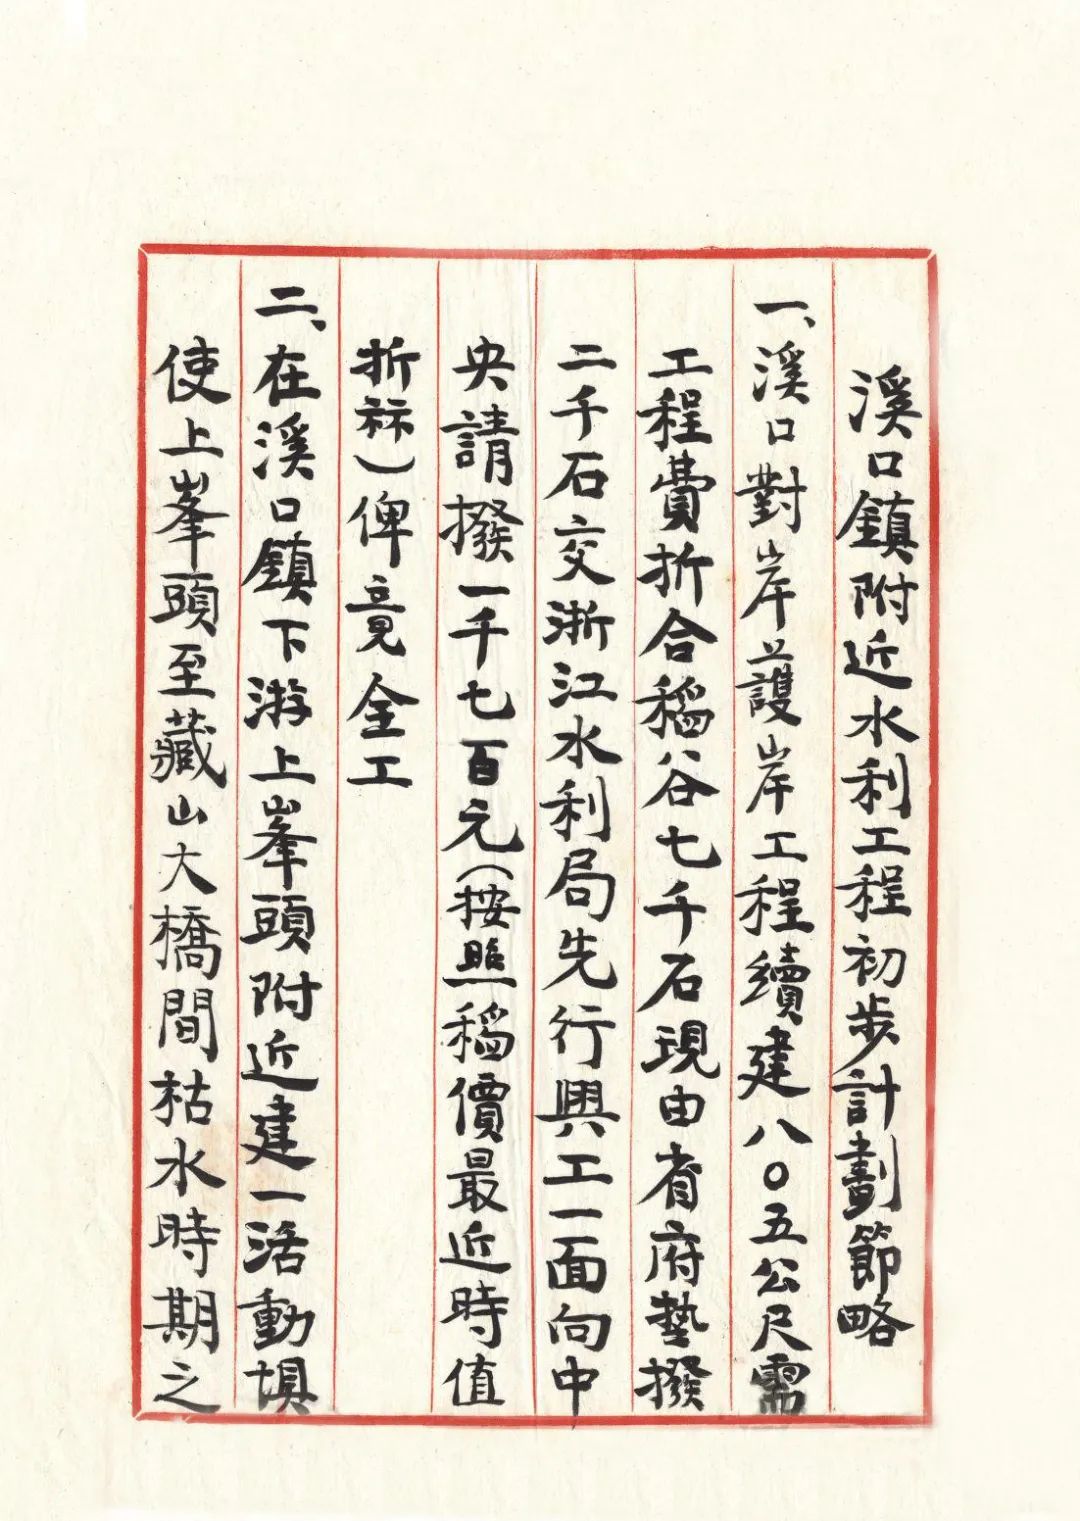 溪口鎮附近水利工程初步計劃節略
一、溪口對岸護岸工程續建八〇五公尺需
工程費折合稻谷七千石現由省府墊撥
二千石交浙江水利局先行興工一面向中
央請撥一千七百元(按照稻價最近時值
折)俾竟全工
二、在溪口鎮下游上峯頭附近建一活動埧
使上峯頭至藏山大橋間枯水時期之